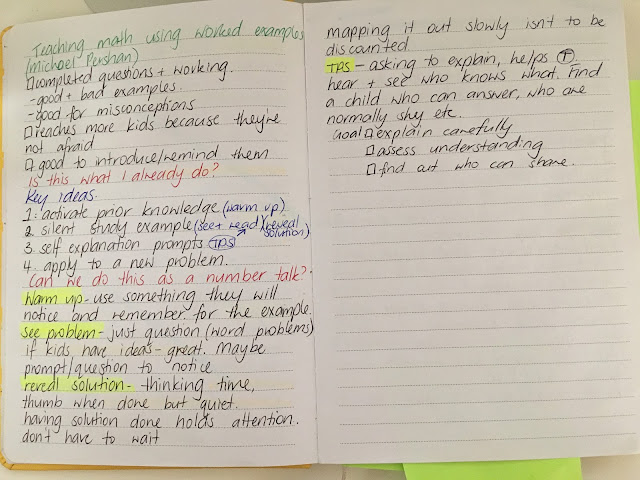 Teaching math using worked examples
(Michael Pershan)
□ completed questions + working.
- good + bad examples.
- good for misconceptions
□ reaches more kids because they're
not afraid
□ good to introduce/remind them
Is this what I already do?
Key ideas.
1. activate prior knowledge (warm up)
2. silent study example (see + read) (reveal
solution)
3. self explanation prompts (TPS)
4. apply to a new problem.
Can we do this as a number talk?
Warm up - use something they will
notice and remember for the example.
see problem - just question (word problems)
if kids have ideas - great. Maybe
prompt/question to notice
reveal solution - thinking time,
thumb when done but quiet.
having solution done holds attention.
don't have to wait
mapping it out slowly isnt to be
discounted
TPS - asking to explain, helps T
hear + see who knows what. Find
a child who can answer, who are
normally shy etc.
Goal □ explain carefully
□ assess understanding
□ find out who can share.